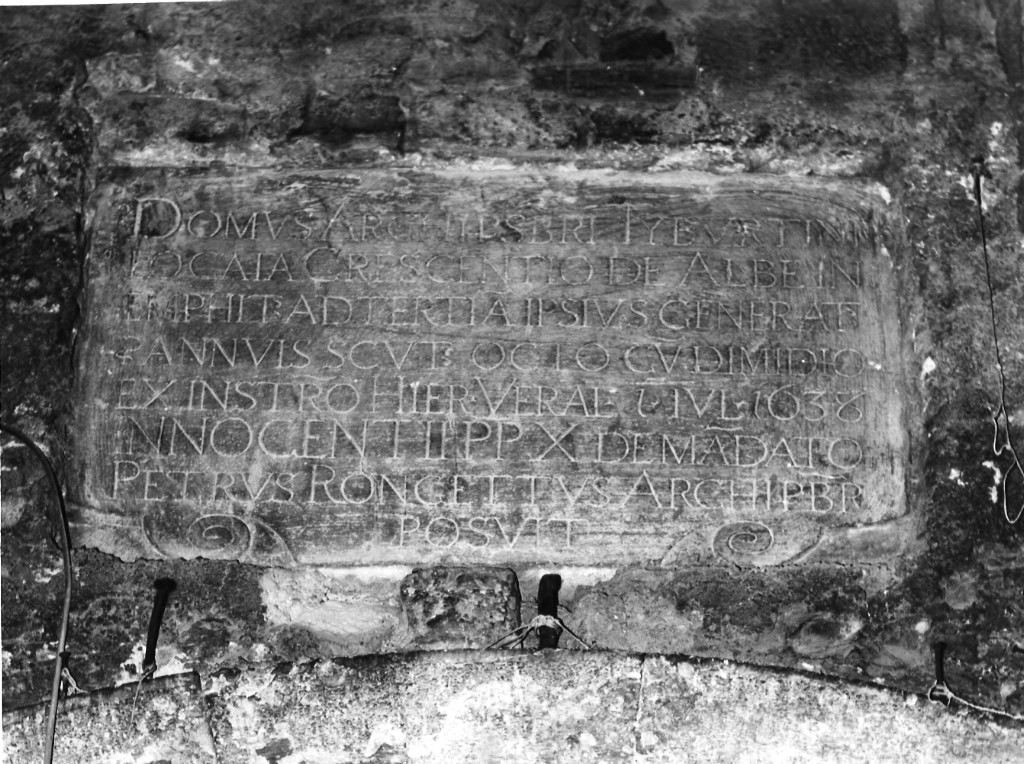 DOMVS ARCHIPSBRI TYBVRTINI
LOCATA CRESCENTIO DE ALBE IN
EMPHIT: AD TERTIA IPSIVS GENERAT:
ANNVIS SCVT: OCTO CV DIMIDIO
EX INSTRO HIER: VERAL IVL: 1638
INNOCENTII PP X DE MÃDATO
PETRVS RONCETTVS ARCHIPBR
POSVIT